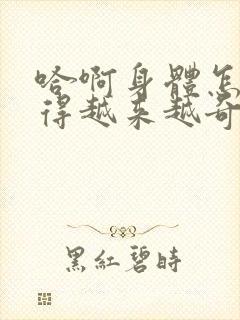 哈啊身體怎
得越来越奇
黑紅碧時